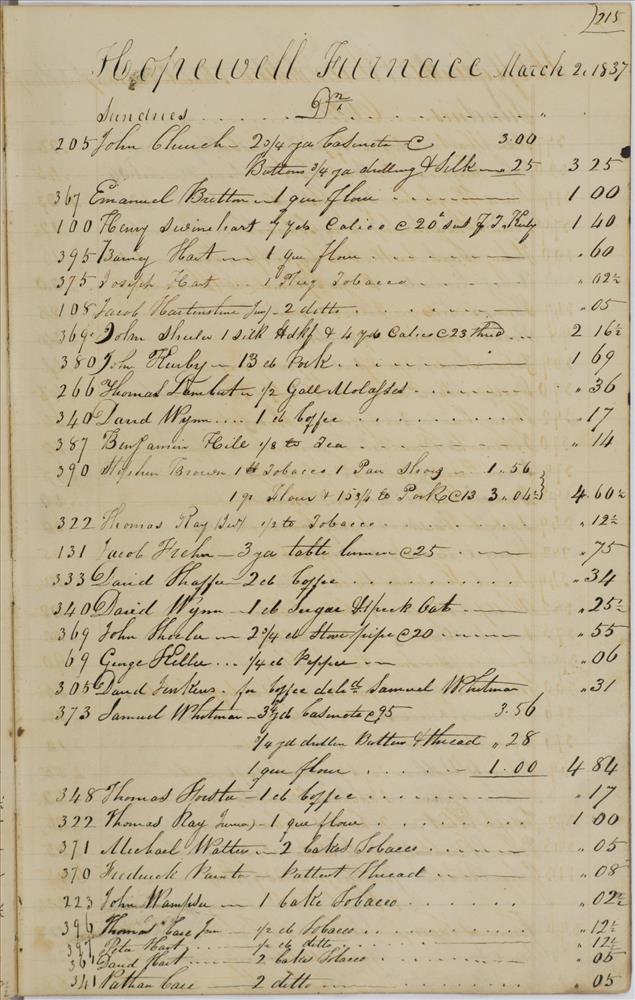 215
Hopewell Furnace March 2, 1837
Sundries Drs
205 John Church - 2 3/4 yds Casinete C 3.00
Buttons 3/4 yd drilling & Silk 25 3 25
367 Emanuel Bretton 1 qur flour 1 00
100 Henry Swinehart 7 yds Calico C 20 1 40
395 Barney Hart 1 qur flour .60
375 Joseph Hart 1 Plug Tobacco .02 1/2
108 Jacob Hartenstine Jun 2 ditto .05
369 John Sheeler 1 silk Hdkf & 4 yds Calico C 23 thrd 2 16 1/2
380 John Kurby 13 lb Pork 1 69
266 Thomas Lambert 1/2 Gall Molasses .36
340 David Wynn 1 lb Coffee .17
387 Benjamin Hill 1/8 lb Tea .14
390 Stephen Brown 1 lb Tobacco 1 Pair Shoes 1.56
1 qr Flour & 15 3/4 lb Pork C 13 3.04 1/2 4 60 1/2
322 Thomas Ray 1/2 lb Tobacco .12 1/2
131 Jacob 3 yd table linnen C 25 .75
333 David Shaffer 2 lb Coffee .34
340 David Wynn 1 lb Sugar & 1 peck Oats .25 1/2
369 John Sheeler 2 3/4 lb Stove pipe C 20 .55
69 George 1/4 lb Pepper .06
305 David Jenkins for Coffee deld Samuel Whitman .31
373 Samuel Whitman 3 3/4 yd Casinete C 95 3.56
3/4 yd drillen Buttons & thread .28
1 qur flour 1.00 4 84
348 Thomas 1 lb Coffee .17
322 Thomas Ray 1 qur flour 1 00
371 Michael Walter 2 Cakes Tobacco .05
370 Frederick Painter Pattent Thread .08
223 John Wampsher 1 Cake Tobacco .02 1/2
396 Thomas Care Jun 1/2 lb Tobacco .12 1/2
397 Peter Hart 1/2 lb ditto .12 1/2
361 David Hart 2 Cakes Tobacco .05
341 Nathan Care 2 ditto .05